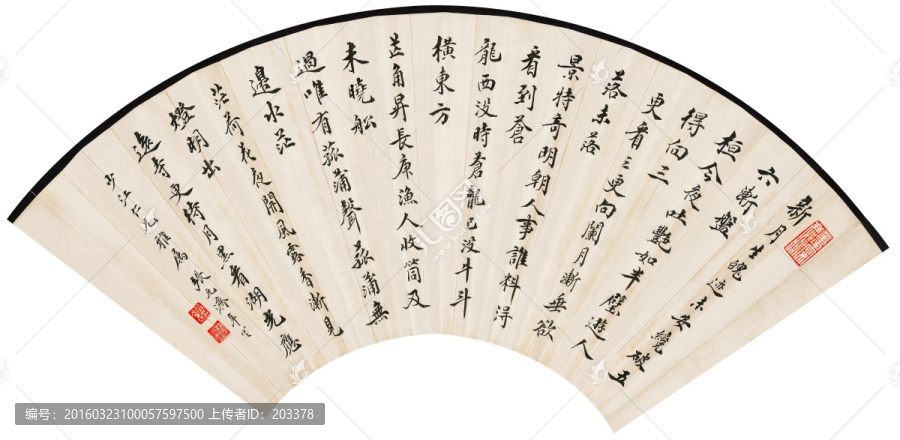 新月生魄迹未安纔破五
六漸盤
桓今夜吐艷如半璧遊人
得向三
更看三更向闌月漸垂欲
落未落
景特奇明朝人事誰料得
看到蒼
龍西没時蒼龍已没牛斗
橫東方
芒角昇長庚漁人收筒及
未曉船
過唯有菰蒲聲菰蒲無
邊水茫
茫荷花夜開風露香漸見
燈明出
遠寺更待月黑看湖光應
少江仁兄雅屬 張元濟
编号：20160323100057597500 上传者ID：203378